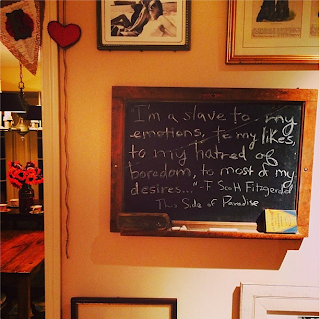 "I'm a slave to my
emotions, to my likes,
to my hatred of
boredom, to most of my
desires..." -F. Scott Fitzgerald
This Side of Paradise